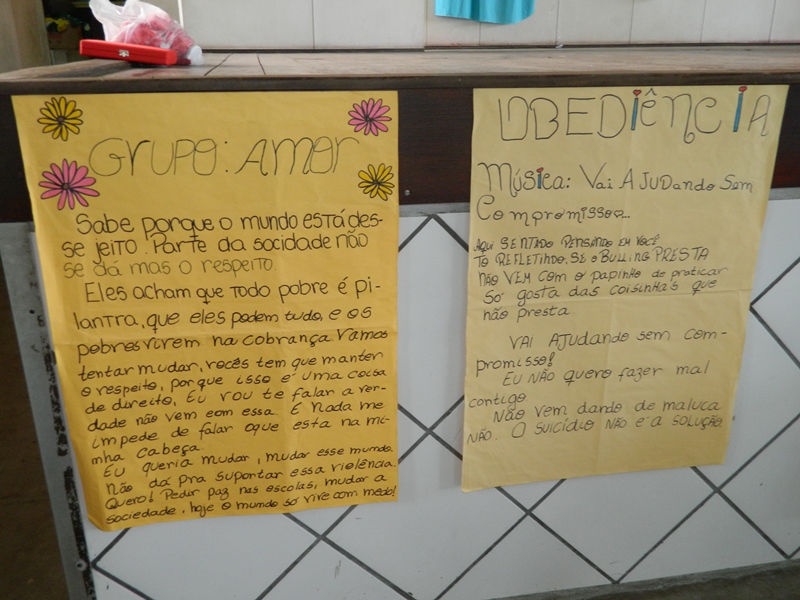 GRUPO: AMOR
Sabe porque o mundo está des-
se jeito. Parte da socidade não
se dá mas o respeito.
Eles acham que todo pobre é pi-
lantra, que eles podem tudo, e os
pobres virem na cobrança Vamos
tentar mudar, vocês tem que manter
o respeito, porque isso é uma coisa
de direito, Eu vou te falar a ver-
dade não vem com essa. E Nada me
impede de falar oque esta na mi-
nha cabeça.
Eu queria mudar, mudar esse mundo.
Não dá pra suportar essa violência.
Quero! Pedir paz nas escolas, mudar a
sociedade, hoje o mundo só vive com medo!
OBEDIÊNCIA
Música: Vai AJUDando Sem
Compromisso...
AQUI SENTADO PENSANDO EM VOCÊ
TO REFLETINDO, SE O BULLING PRESTA
NÃO VEM COM o papinho de praticar
Só gosta das coisinha's que
não presta
VAI AJUdando sem com-
promisso!
EU NÃO quero fazer mal
contigo
Não vem dando de maluca
NÃO. O SUICÍDIO NÃO É A SOLUÇÃO.